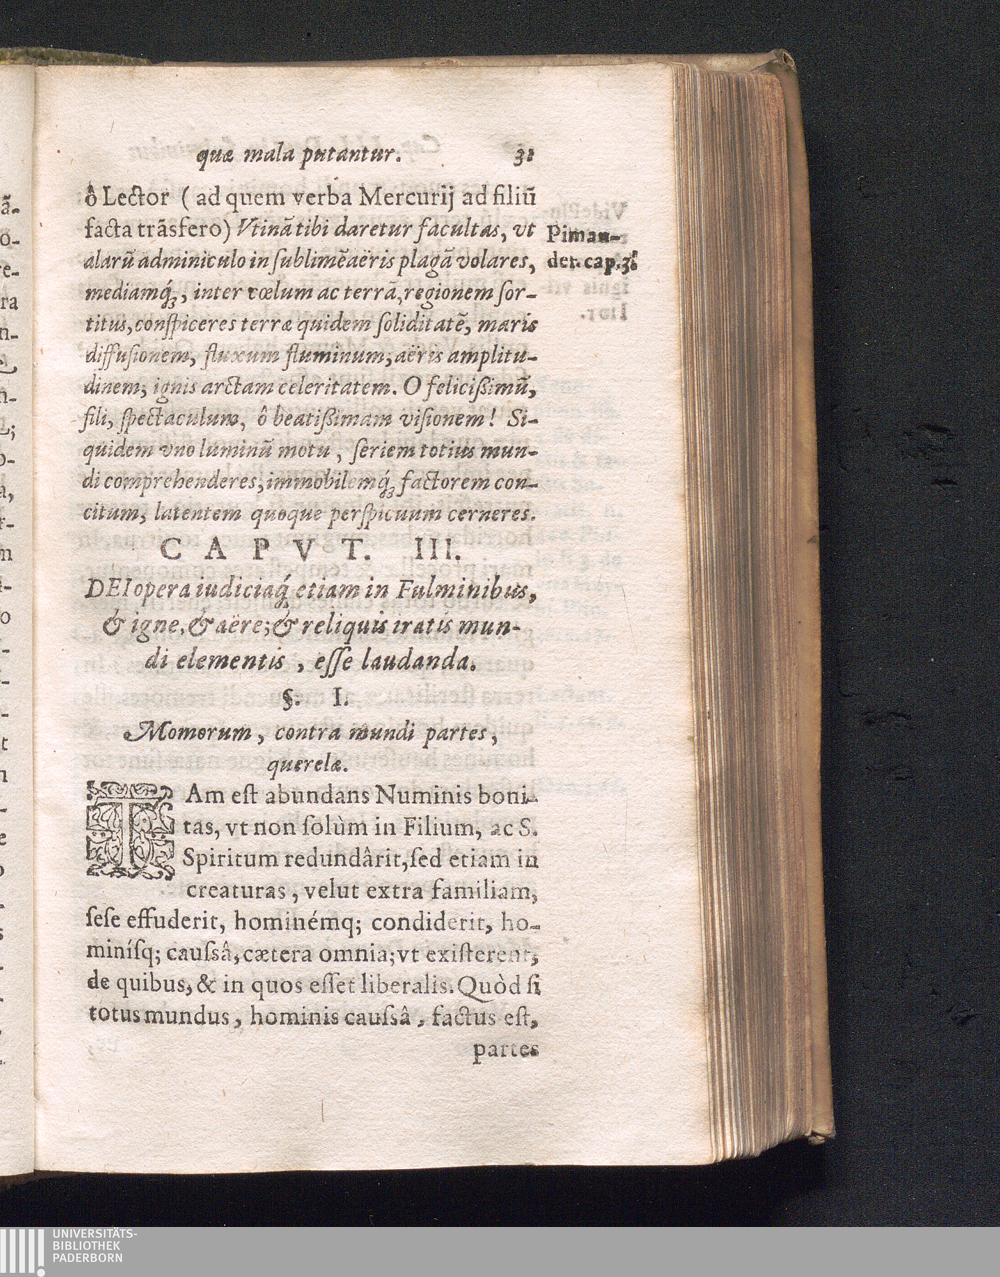 quæ mala putantur. 31
ô Lector ( ad quem verba Mercurij ad filiũ
facta trãsfero) Vtinã tibi daretur facultas, vt
alarũ adminiculo in ſublimẽ aëris plagã volares,
mediamq́;, inter cœlum ac terrã, regionem ſor-
titus, conſpiceres terræ quidem ſoliditatẽ, maris
diffuſionem, fluxum fluminum, aëris amplitu-
dinem, ignis arctam celeritatem. O feliciſsimũ,
fili, ſpectaculum, ô beatiſsimam viſionem! Si-
quidem vno luminũ motu, ſeriem totius mun-
di comprehenderes, immobilemq́; factorem con-
citum, latentem quoque perſpicuum cerneres.
Piman-
der. cap. 3.
CAPVT. III.
DEI opera iudiciaq́; etiam in Fulminibus,
& igne, & aëre; & reliquis iratis mun-
di elementis, eſſe laudanda.
§. I.
Momorum, contra mundi partes,
querelæ.
TAm eſt abundans Numinis boni-
tas, vt non ſolùm in Filium, ac S.
Spiritum redundârit, ſed etiam in
creaturas, velut extra familiam,
ſeſe effuderit, hominémq; condiderit, ho-
miniſq; cauſsâ, cætera omnia; vt exiſterent,
de quibus, & in quos eſſet liberalis. Quòd ſi
totus mundus, hominis cauſsâ, factus eſt,
partes
UNIVERSITÄTS-
BIBLIOTHEK
PADERBORN